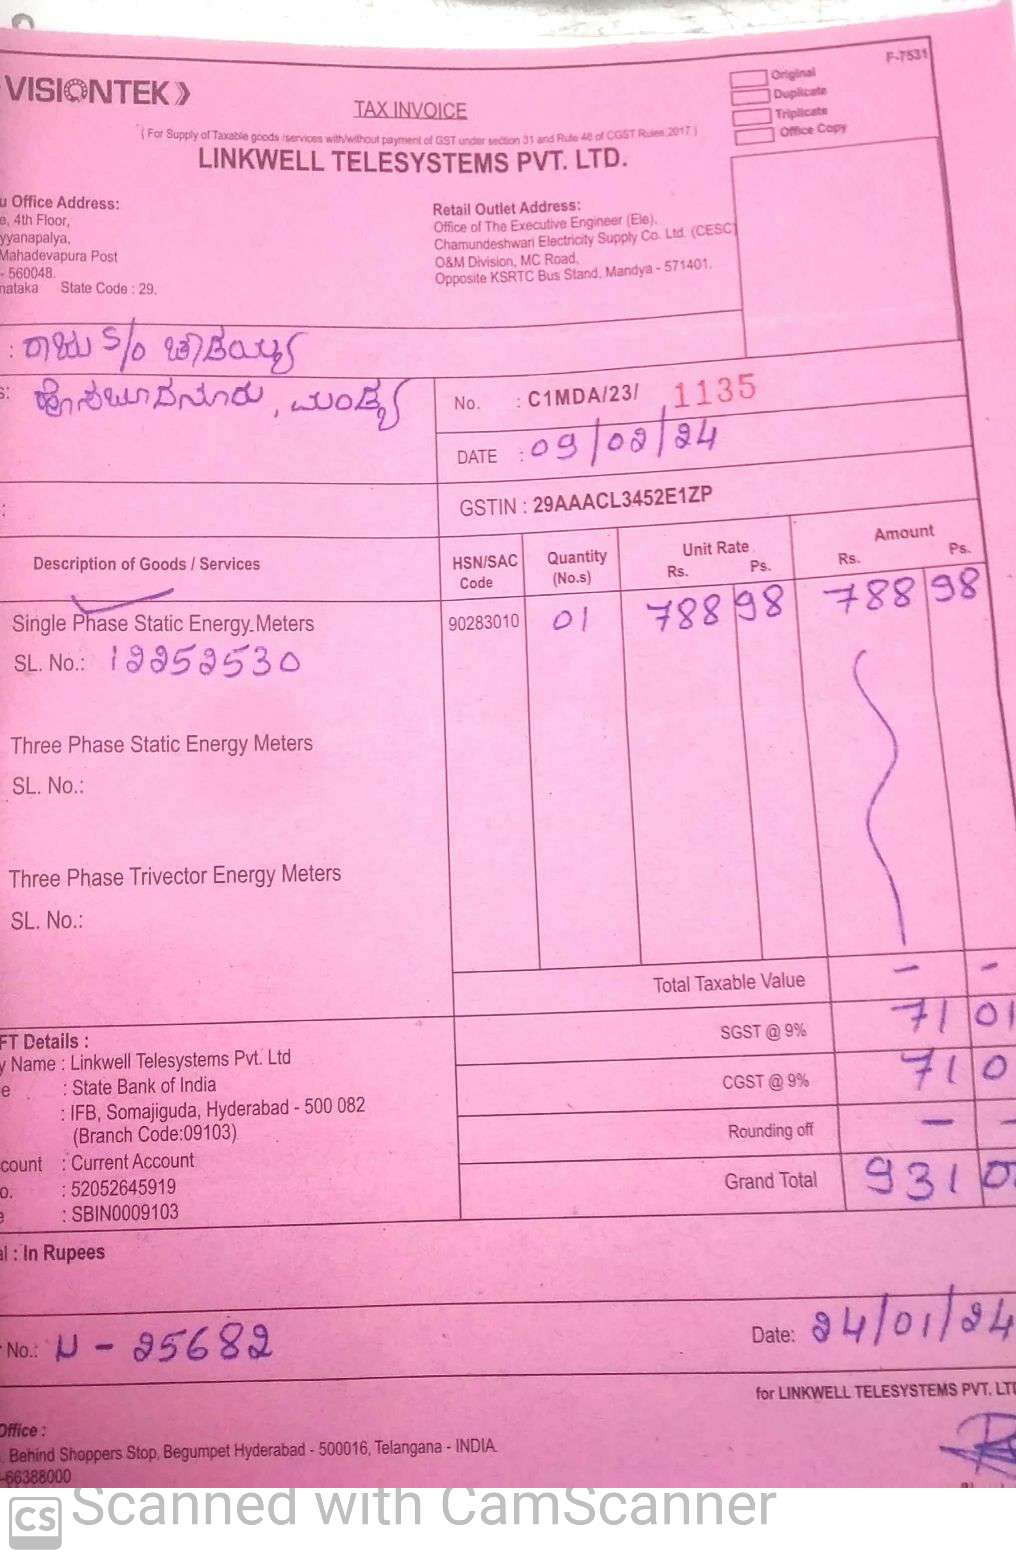 F-7531
VISIONTEK
Original
Duplicate
Triplicate
Office Copy
TAX INVOICE
( For Supply of Taxable goods /services with/without payment of GST under section 31 and Rule 46 of CGST Rules,2017 )
LINKWELL TELESYSTEMS PVT. LTD.
u Office Address:
e, 4th Floor,
yyanapalya,
Mahadevapura Post
- 560048.
nataka State Code : 29.
Retail Outlet Address:
Office of The Executive Engineer (Ele),
Chamundeshwari Electricity Supply Co. Ltd. (CESC)
O&M Division, MC Road,
Opposite KSRTC Bus Stand, Mandya - 571401.
: ರಾಜು S/o
s: ಹೊಸಬೂದನೂರು, ಮಂಡ್ಯ
No. : C1MDA/23/ 1135
DATE : 09/02/24
GSTIN : 29AAACL3452E1ZP
Description of Goods / Services
HSN/SAC Code
Quantity (No.s)
Unit Rate Rs. Ps.
Amount Rs. Ps.
Single Phase Static Energy Meters 90283010 01 788 98 788 98
SL. No.: 12252530
Three Phase Static Energy Meters
SL. No.:
Three Phase Trivector Energy Meters
SL. No.:
Total Taxable Value - -
SGST @ 9% 71 01
CGST @ 9% 71 0
Rounding off - -
Grand Total 931 0
FT Details :
y Name : Linkwell Telesystems Pvt. Ltd
e : State Bank of India
: IFB, Somajiguda, Hyderabad - 500 082
(Branch Code:09103)
count : Current Account
o. : 52052645919
e : SBIN0009103
al : In Rupees
No.: N - 25682
Date: 24/01/24
for LINKWELL TELESYSTEMS PVT. LT
Office :
Behind Shoppers Stop, Begumpet Hyderabad - 500016, Telangana - INDIA.
-66388000
CS Scanned with CamScanner